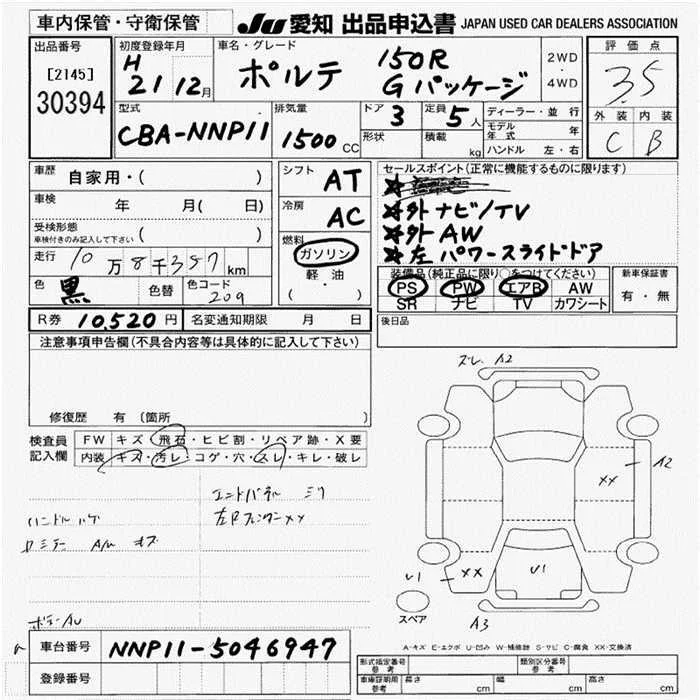 車内保管・守衛保管
JU 愛知 出品申込書 JAPAN USED CAR DEALERS ASSOCIATION
出品番号
[2145]
30394
初度登録年月
H
21 12月
車名・グレード
ポルテ 150R
Gパッケージ
2WD
・
4WD
評価点
3.5
外装 内装
C B
型式
CBA-NNP11
排気量
1500 CC
ドア
3
定員
5人
形状
積載
kg
ディーラー・並行
モデル年式 年
ハンドル 左・右
車歴
自家用・( )
車検
年 月( 日)
受検形態
車検付きのみ記入して下さい ( )
走行 10万8千357km
色 黒 色替 色コード 209
シフト
AT
冷房
AC
燃料
ガソリン
軽・油
( ・ )
セールスポイント(正常に機能するものに限ります)
★
★外 ナビ/TV
★外 AW
★左 パワースライドドア
装備品(純正品に限り○をつけてください)
PS PW エアB AW
SR ナビ TV カワシート
新車保証書
有・無
R券 10,520円 名変通知期限 月 日
後日品
注意事項申告欄(不具合内容等は具体的に記入して下さい)
修復歴 有(箇所 )
検査員
記入欄
FW キズ・飛石・ヒビ割・リペア跡・X要
内装 キズ・汚レ・コゲ・穴・スレ・キレ・破レ
エンドパネル ミリ
左Rフェンダー××
ハンドル ハゲ
A/W キズ
ボデーAU
ズレ A2
A2
××
U1
××
U1
スペア
A3
A-キズ E-エクボ U-凹み W-補修跡 S-サビ C-腐食 XX-交換済
車台番号 NNP11-5046947
登録番号
形式指定番号
参考
類別区分番号
参考
車庫証明用
参考
長さ cm 幅 cm 高さ cm